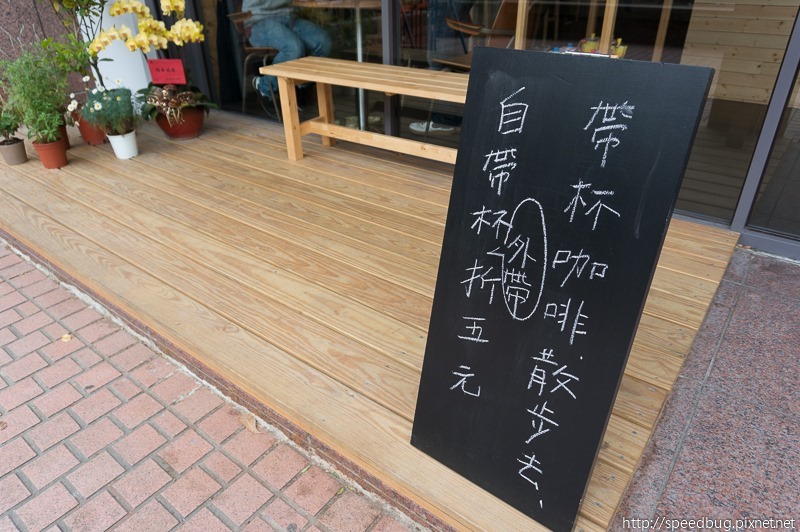 帶杯咖啡.散步去、
自帶杯外帶折五元
http://speedbug.pixnet.net